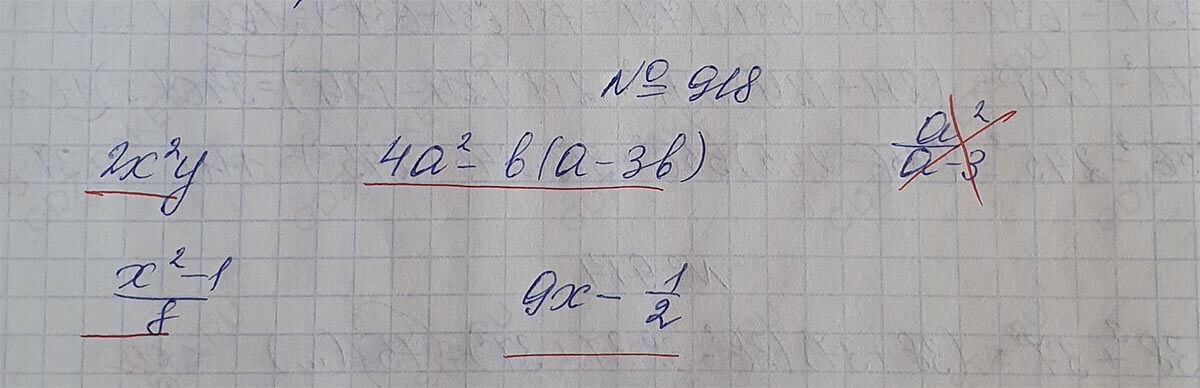 № 918
2x²y 4a² - b(a - 3b) a²/(a - 3)
(x² - 1)/8 9x - 1/2